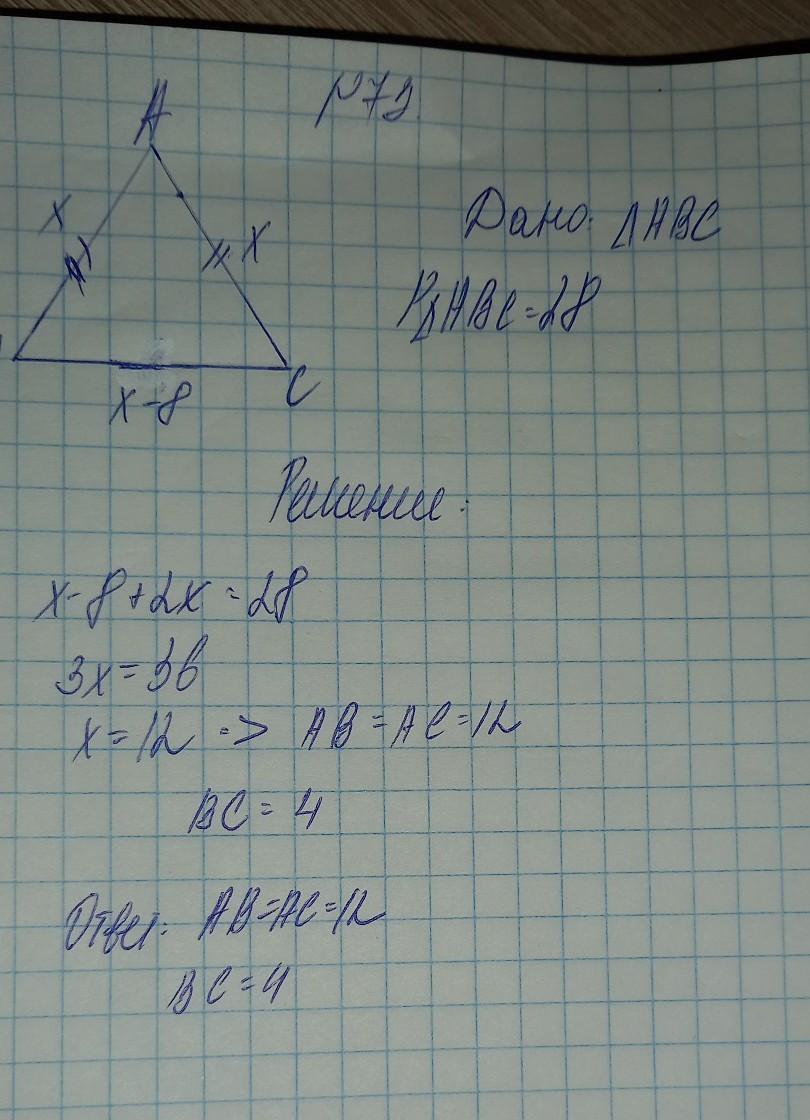 A
№ 72
x
x
Дано: △ABC
P△ABC=28
C
x-8
Решение:
x-8+2x=28
3x=36
x=12 => AB=AC=12
BC=4
Ответ: AB=AC=12
BC=4